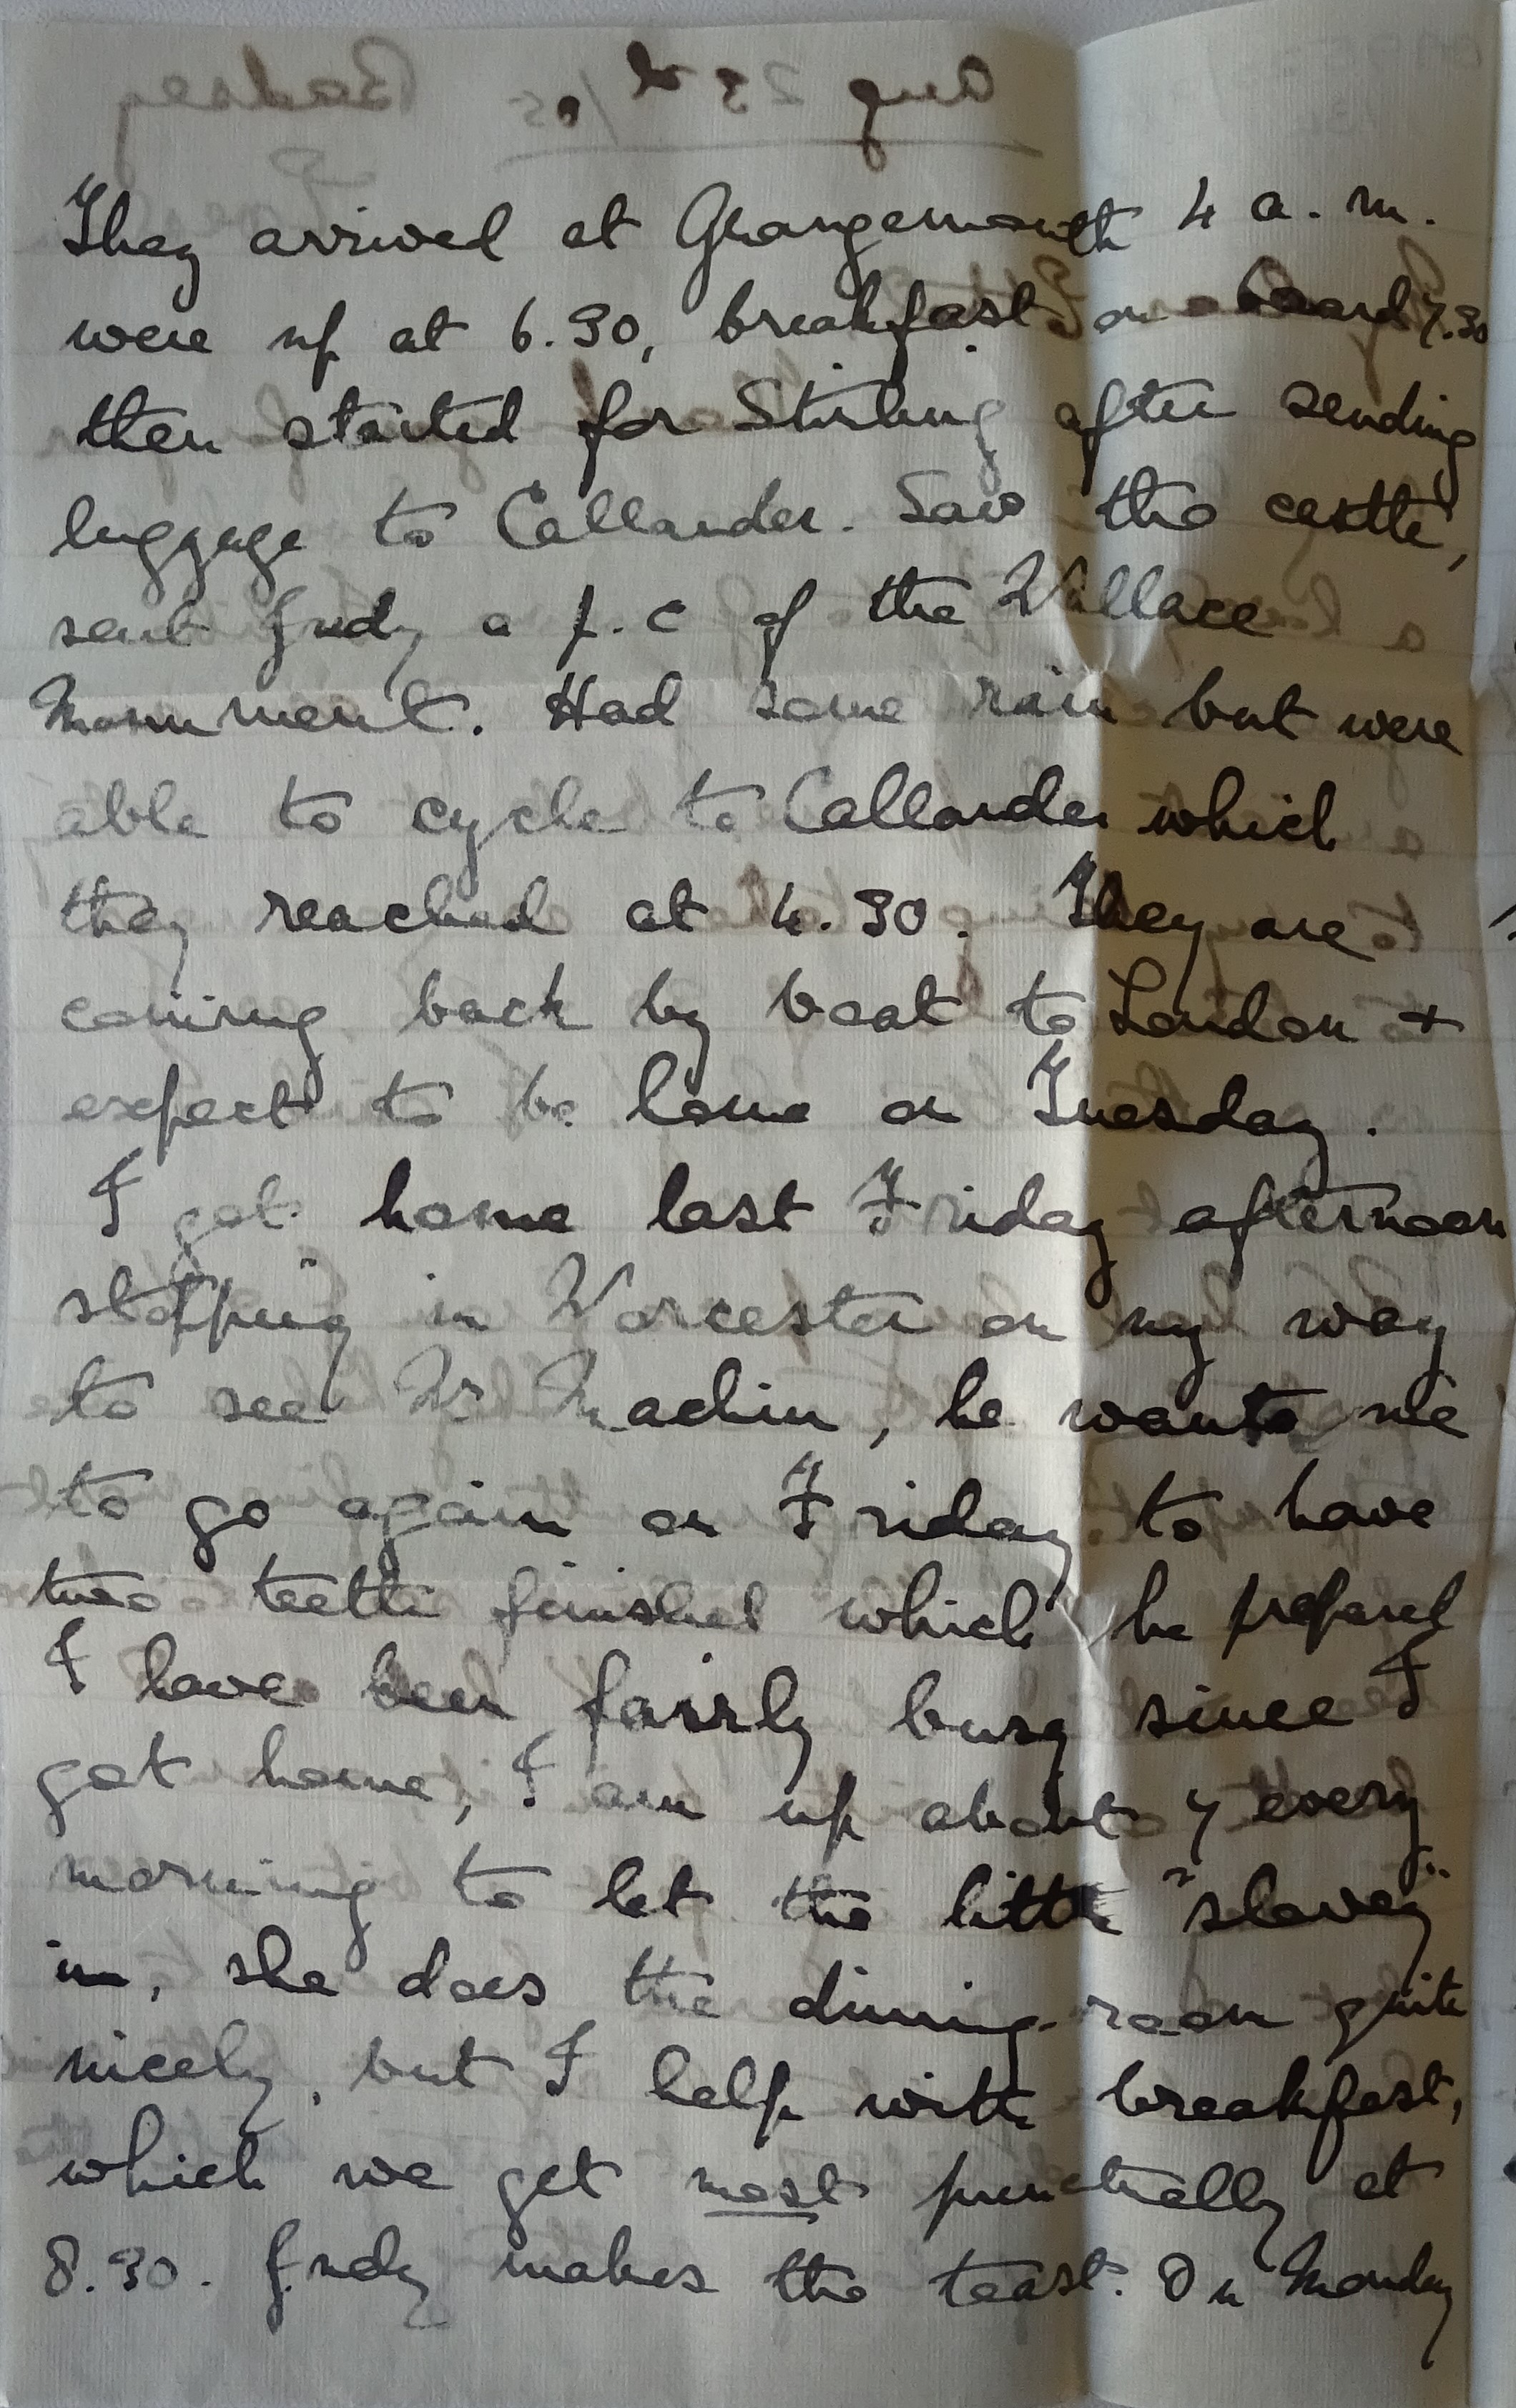 They arrived at Grangemouth 4 a.m.
were up at 6.30, breakfast on board 7.30
then started for Stirling after sending
luggage to Callander. Saw the castle,
sent Judy a p.c of the Wallace
Monument. Had some rain but were
able to cycle to Callander which
they reached at 4.30. They are
coming back by boat to London +
expect to be home on Tuesday.
I got home last Friday afternoon
stopping in Worcester on my way
to see Mr Machin, he wants me
to go again on Friday to have
two teeth finished which he prepared
I have been fairly busy since I
got home, I am up about 7 every
morning to let the little "slavey"
in, she does the dining-room quite
nicely, but I help with breakfast,
which we get most punctually at
8.30. Judy makes the toast. On Monday